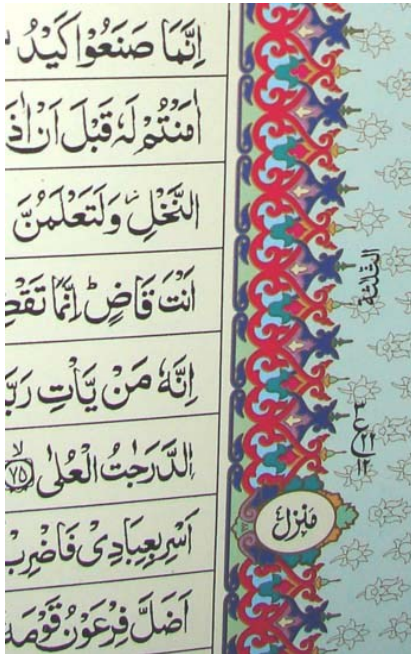 اِنَّمَا صَنَعُوْا كَيْدُ
اٰمَنْتُمْ لَهٗ قَبْلَ اَنْ اٰذَ
النَّخْلِ ؗ وَلَتَعْلَمُنَّ
اَنْتَ قَاضٍ ؕ اِنَّمَا تَقْضِ
اِنَّهٗ مَنْ يَّاْتِ رَبَّ
الدَّرَجٰتُ الْعُلٰى ۙ ۷۵
اَسْرِ بِعِبَادِيْ فَاضْرِبْ
اَضَلَّ فِرْعَوْنُ قَوْمَهٗ
الثلٰثة
منزل ٤